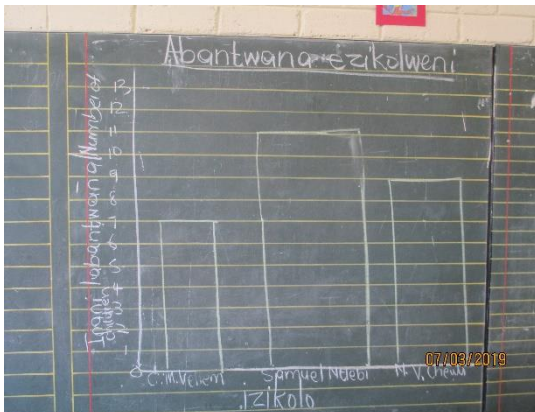 Abantwana ezikolweni
Inani labantwana/Number of
children
13
12
11
10
9
8
7
6
5
4
3
2
1
0
C.M.Vellem
Samuel Ntlebi
N.V.Cewu
Izikolo
07/03/2019